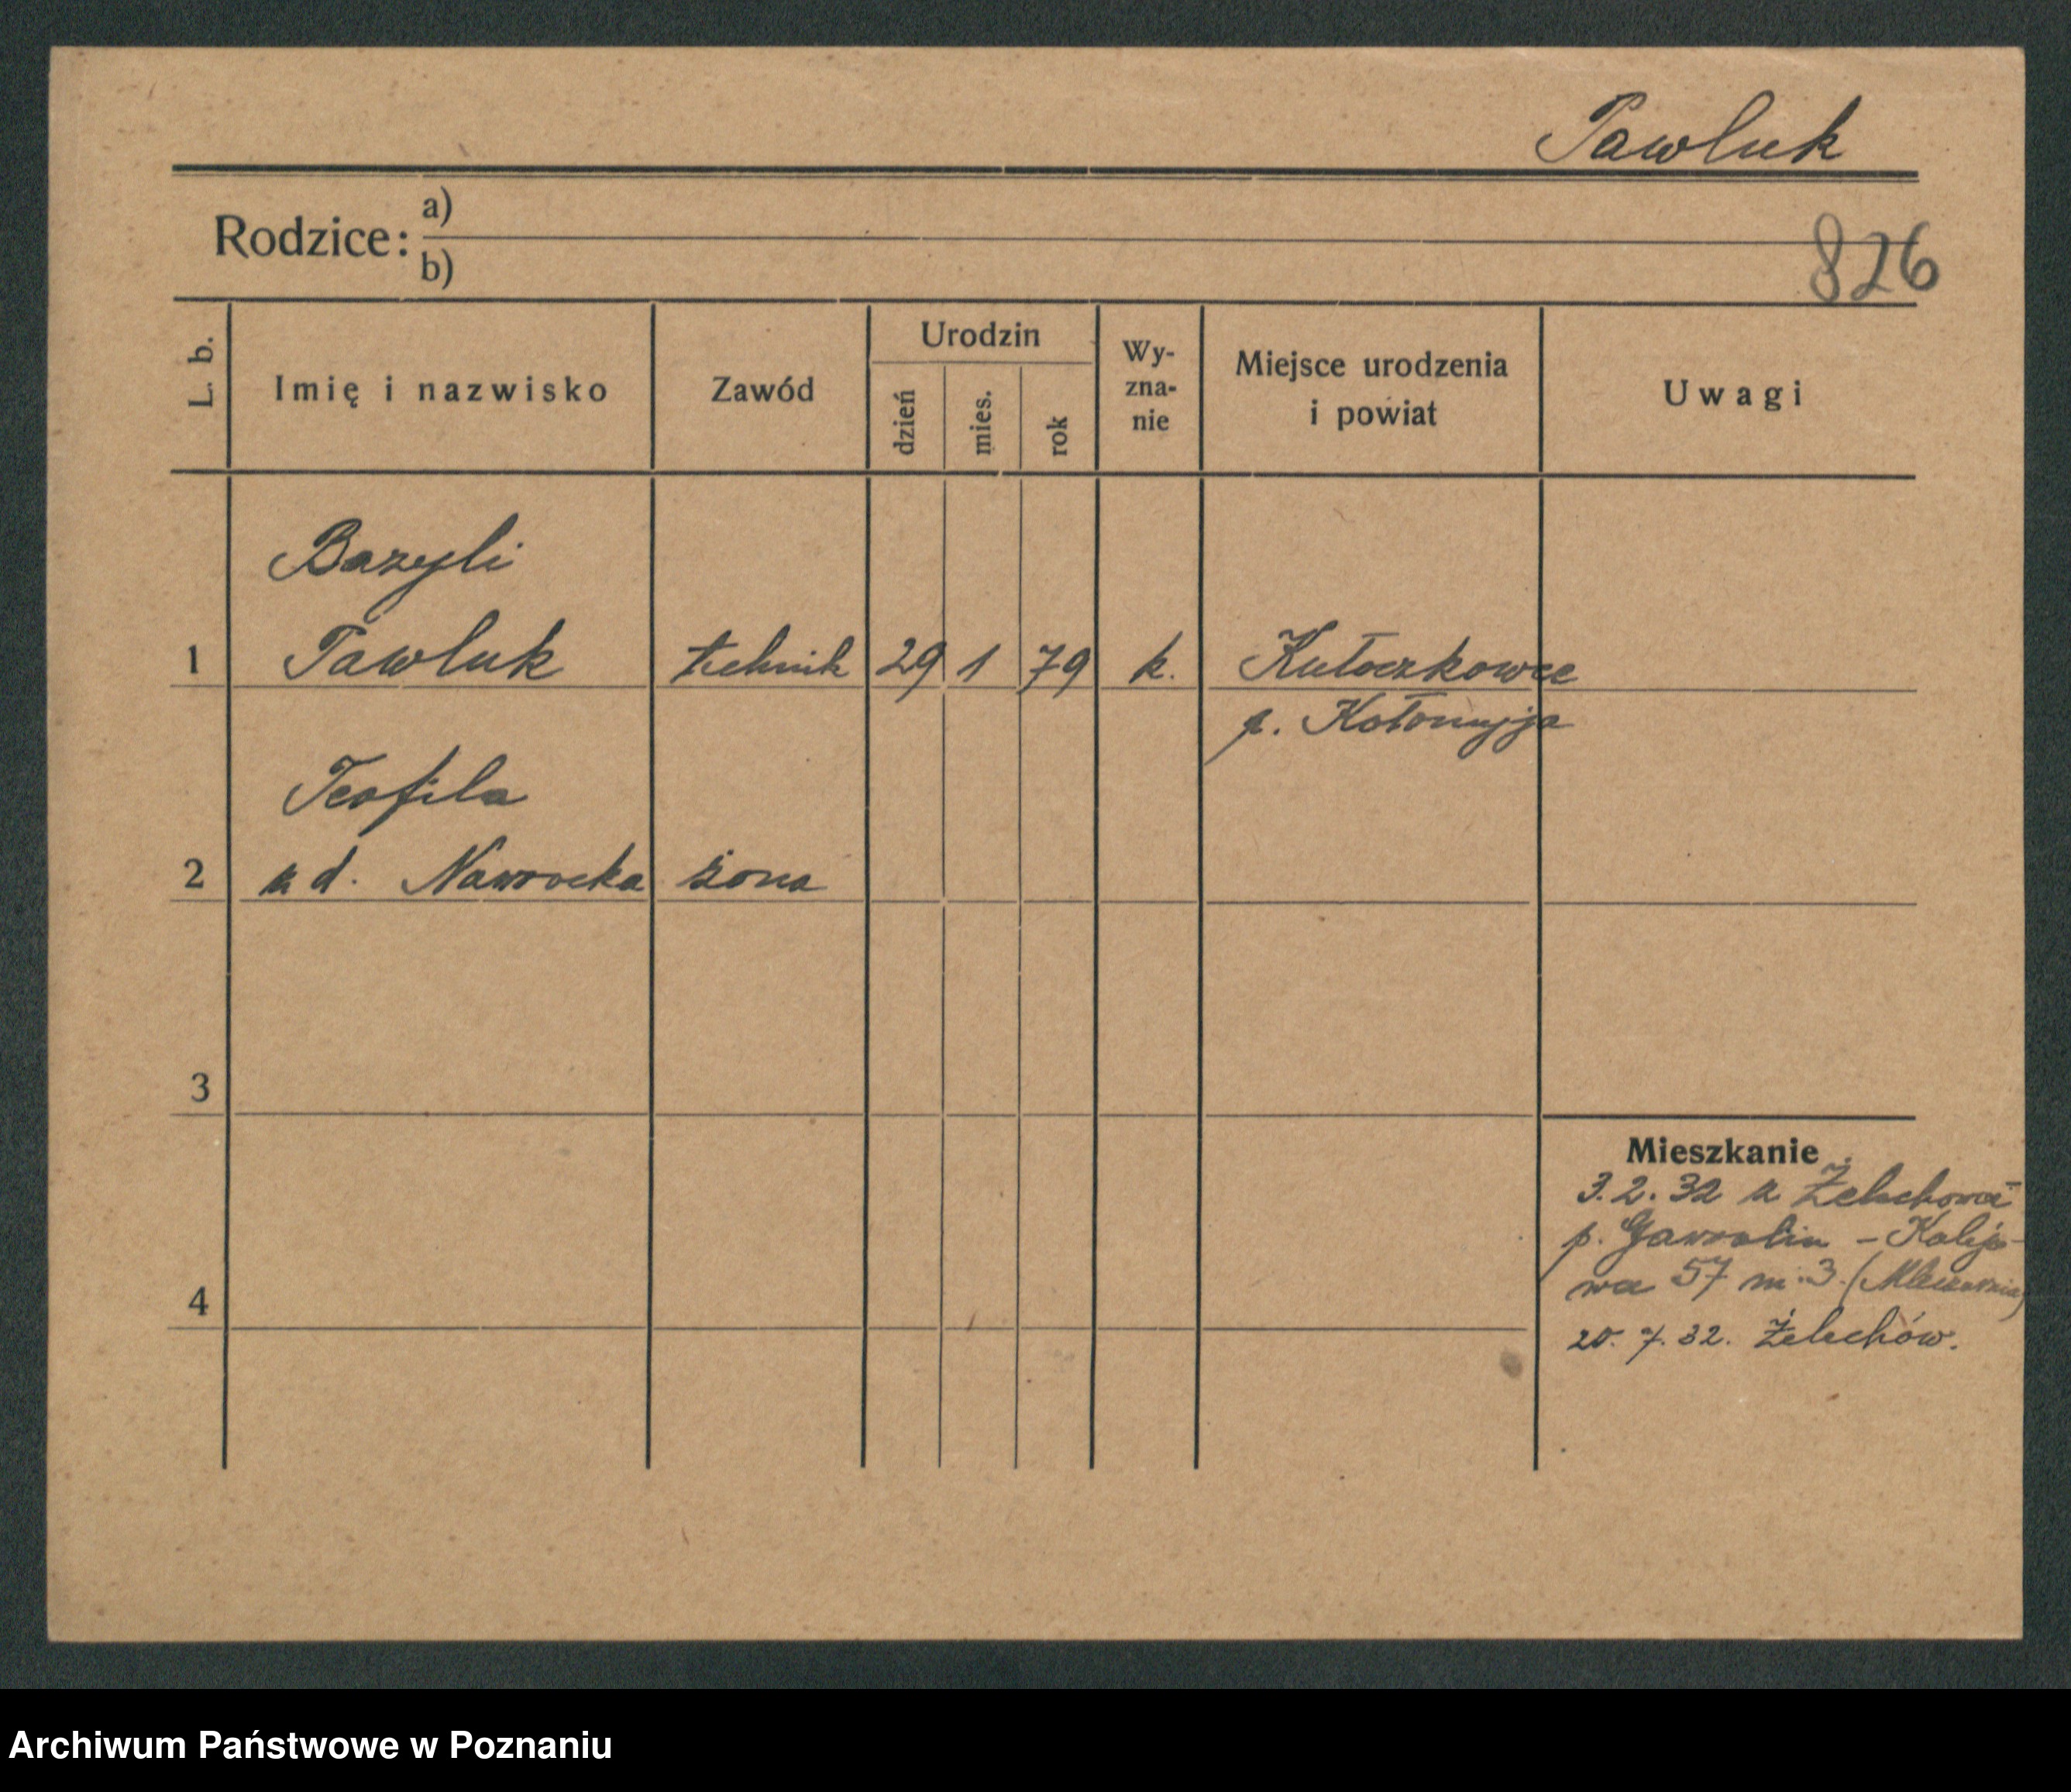 Pawluk
Rodzice: a)
b)
826
L. b.
Imię i nazwisko
Zawód
Urodzin
dzień
mies.
rok
Wy-
zna-
nie
Miejsce urodzenia
i powiat
Uwagi
Bazyli
1 Pawluk technik 29 1 79 k.
p. Kołomyja
Teofila
2 zd. Nawrocka żona
3
Mieszkanie
3.2.32 z Żelechowa
p. Garwolin -
57 m. 3 (Mleczarnia)
4
20.7.32. Żelechów.
Archiwum Państwowe w Poznaniu